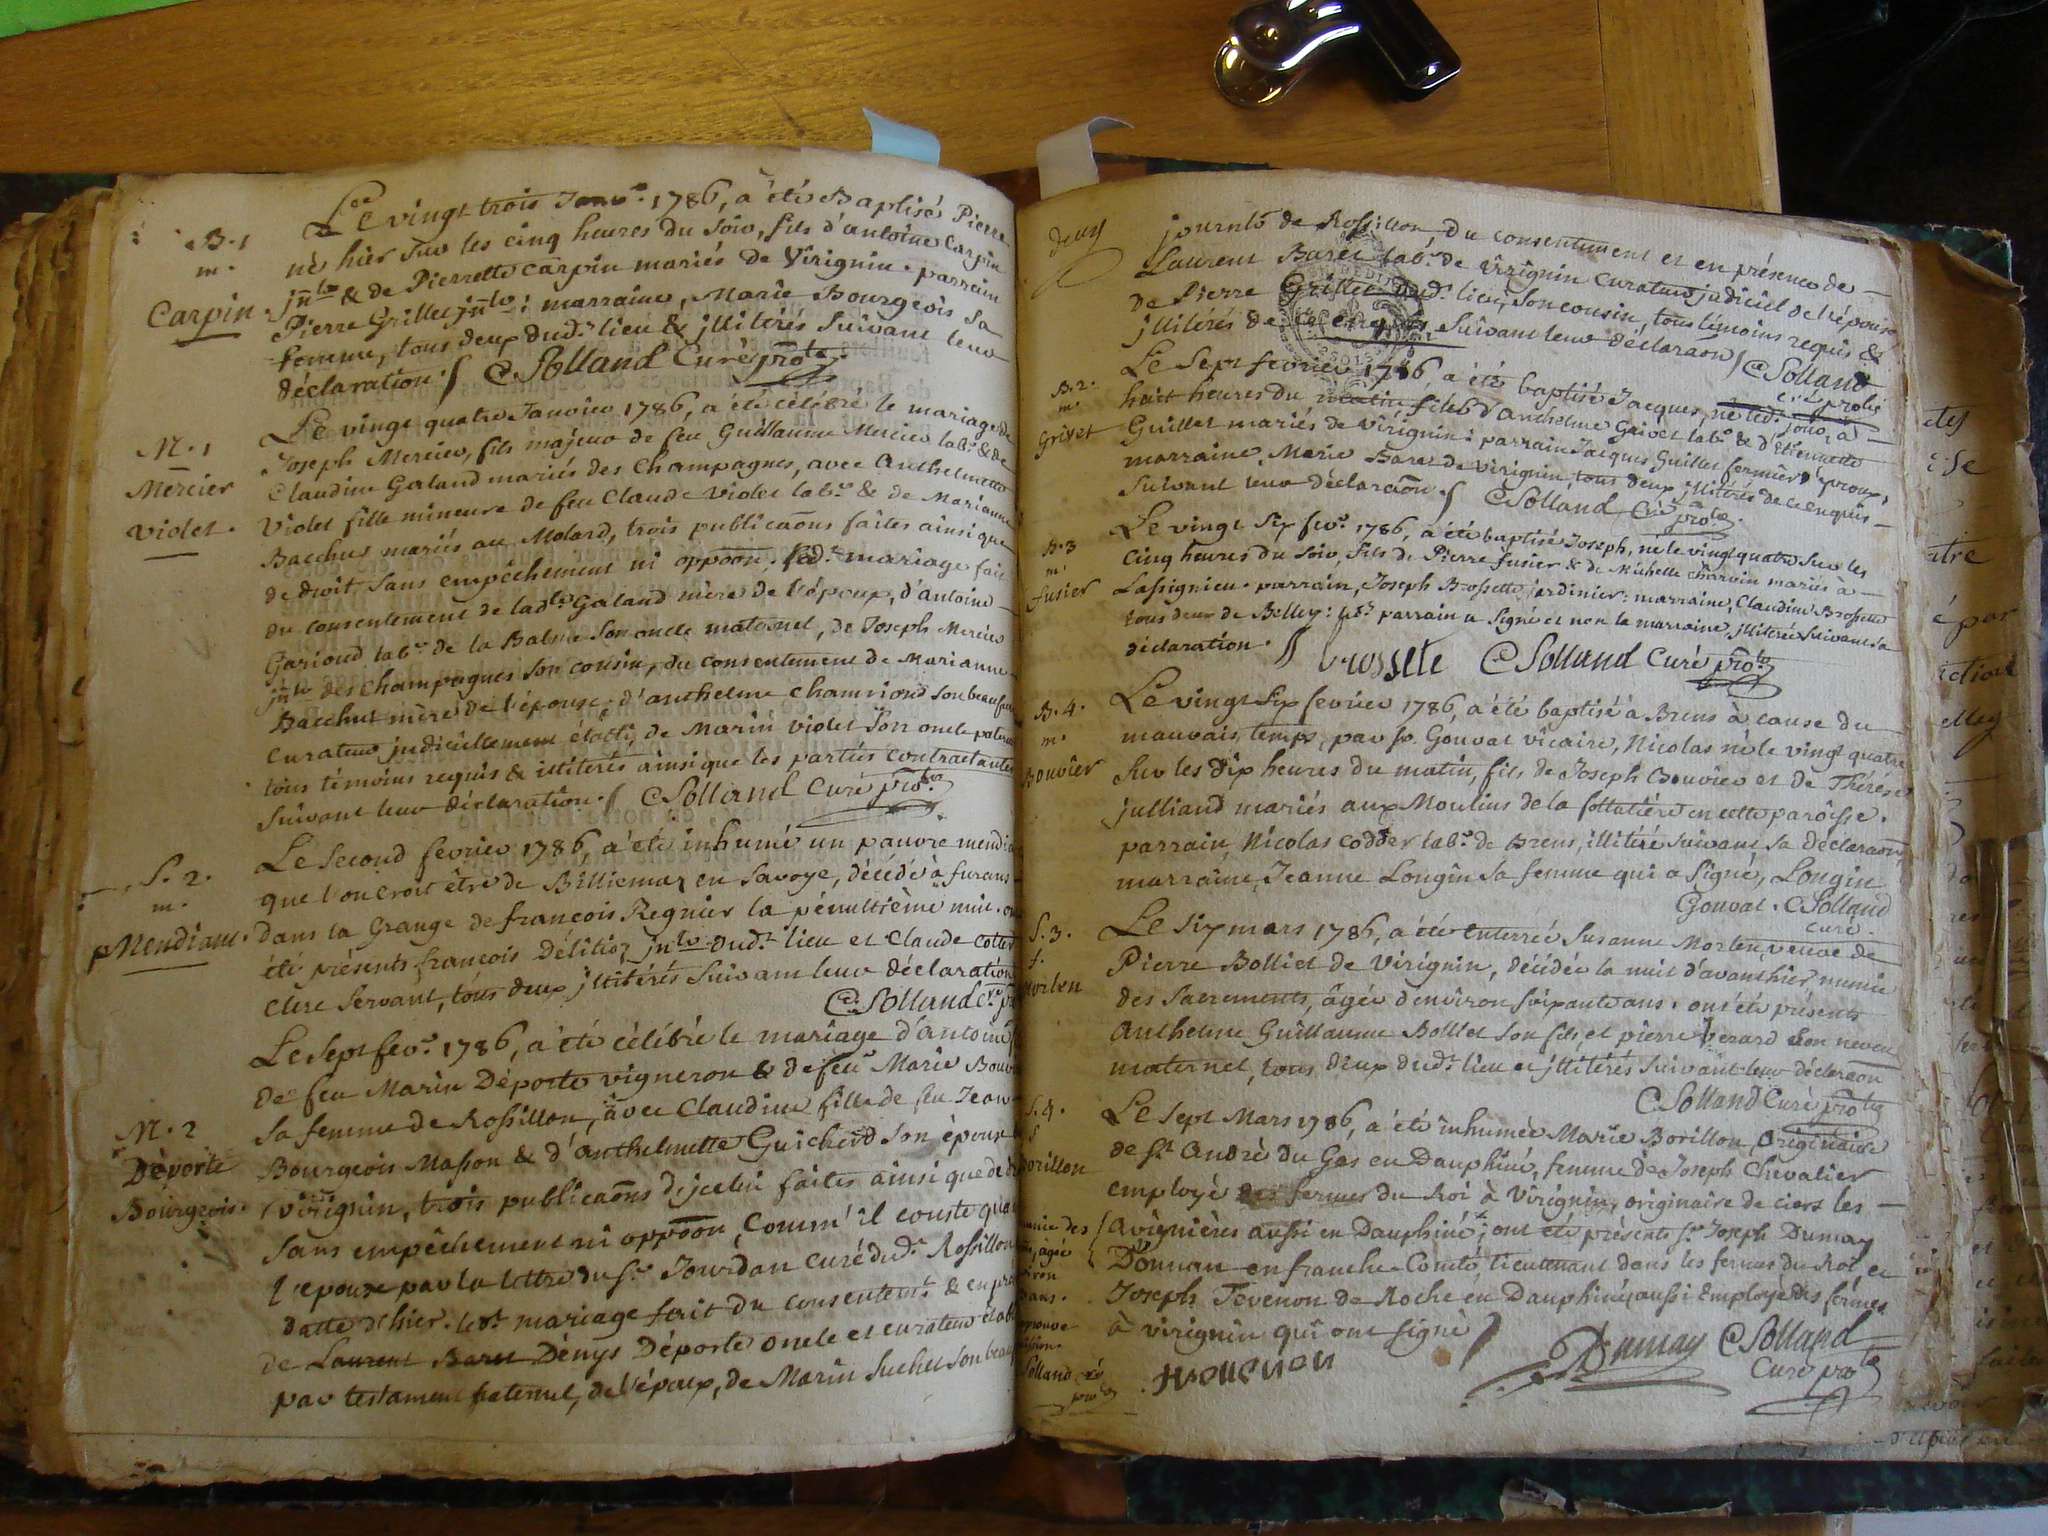 B. 1
m.
Carpin.
Le vingt trois Janv.r 1786, a été Baptisé Pierre
né hier sur les cinq heures du soir, fils d'antoine Carpin
j.nlr & de Pierrette Carpin mariés de Virignin. parrain
Pierre Grillet j.nlr: marraine, Marie Bourgeois sa
femme, tous deux dud.t lieu & jllitérés suivant leur
déclaration. C. Solland Curé
M. 1
Mercier
Violet.
Le vingt quatre Janvier 1786, a été célébré le mariage de
Joseph Mercier, fils majeur de feu Guillaume Mercier lab.r & de
Claudine Galand mariés des Champagnes, avec Anthelmette
Violet fille mineure de feu Claude Violet lab.r & de Marianne
Bacchus mariés au Molard, trois publicaons faites ainsi que
de droit sans empêchement ni oppoon. led.t mariage fait
du consentement de lad.te Galand mère de l'époux, d'antoine
Garioud lab.r de la Balme son oncle maternel, de Joseph Mercier
j.nlr des Champagnes son cousin, du consentement de Marianne
Bacchus mère de l'épouse, d'anthelme Chamriond son beaufrere
Curateur judiciellement établi, de Marin Violet son oncle
tous témoins requis & illitérés ainsi que les parties contractantes
suivant leur déclaration. C. Solland Curé
S. 2.
m.
Mendiant.
Le Second fevrier 1786, a été inhumé un pauvre
que l'on croit être de Billiemaz en Savoye, décédé à furans
dans la Grange de françois Regnier la pénultième nuit.
été présents françois Délitioz j.nlr dud.t lieu et Claude
Clerc servant, tous deux jllitérés suivant leur déclaration
C. Solland
M. 2
Déporte
Bourgeois.
Le Sept fev.r 1786, a été célébré le mariage d'antoine
de feu Marin Déporte vigneron & de feu Marie
sa femme de Rossillon, avec Claudine fille de feu Jean
Bourgeois Masson & d'anthelmette Guicherd son épouse
Virignin, trois publicaons d'jcelui faites ainsi que de
sans empêchement ni oppoon, comm' il conste
l'epoux par la lettre du S.r Jourdan curé dud.t Rossillon
datte d'hier. led.t mariage fait du consentem.t & en
de Laurent Baret Dénys Déporte oncle et curateur
par testament paternel, de l'époux, de Marin Suchet son
deux
journlr de Rossillon, du consentement et en présence de
Laurent Baret lab.r de Virignin Curateur judiciel de l'épouse
de Pierre Grillet dud.t lieu, son cousin, tous témoins requis &
jllitérés de ce enquis suivant leur déclaraon C. Solland
B. 2.
m.
Grivet
Le Sept fevrier 1786, a été baptisé Jacques, né led.t jour, à
huit heures du matin, fils d'anthelme Grivet lab.r & d'Etiennette
Guillet mariés de Virignin: parrain Jacques Guillet fermier
marraine, Marie Baret de Virignin, tous deux jllitérés de ce enquis
suivant leur déclaraon. C. Solland
B. 3
m.
fusier
Le vingt six fev.r 1786, a été baptisé Joseph, né le vingt quatre sur les
Cinq heures du soir, fils de Pierre fusier & de Michelle Charvin mariés à
Lassignieu. parrain, Joseph Brossette jardinier: marraine, Claudine Brossette
tous deux de Belley: led.t parrain a signé et non la marraine, jllitérée suivant sa
déclaration. brossete C. Solland Curé
B. 4.
m.
Bouvier
Le vingt six fevrier 1786, a été baptisé à Brens à cause du
mauvais temps, par sr. Gouvat vicaire, Nicolas né le vingt quatre
sur les dix heures du matin, fils de Joseph Bouvier et de Thérèse
julliand mariés aux Moulins de la follatière en cette paroisse.
parrain, Nicolas Codder lab.r de Brens, illitéré suivant sa déclaraon
marraine, Jeanne Longin sa femme qui a signé, Longin
Gouvat. C. Solland
curé.
S. 3.
f.
Morten
Le six mars 1786, a été enterrée Susanne Morten, veuve de
Pierre Bolliet de Virignin, décédée la nuit d'avanthier, munie
des Sacrements, âgée d'environ soixante ans. ont été présents
Anthelme Guillaume Bolliet son fils, et pierre berard son neveu
maternel, tous deux dud.t lieu et jllitérés suivant leur déclaraon
C. Solland Curé
S. 4.
f
Borillon
Le Sept Mars 1786, a été inhumée Marie Borillon originaire
de St. André du Gas en Dauphiné, femme de Joseph Chevalier
employé des fermes du Roi à Virignin, originaire de ciers les
Avignières aussi en Dauphiné; ont été présents S.r Joseph Dumay
Dournan en franche-Comté, lieutenant dans les fermes du Roi, et
Joseph Tevenon de Roche en Dauphiné, aussi Employé des fermes
à virignin qui ont signé
Dumay C. Solland
Curé